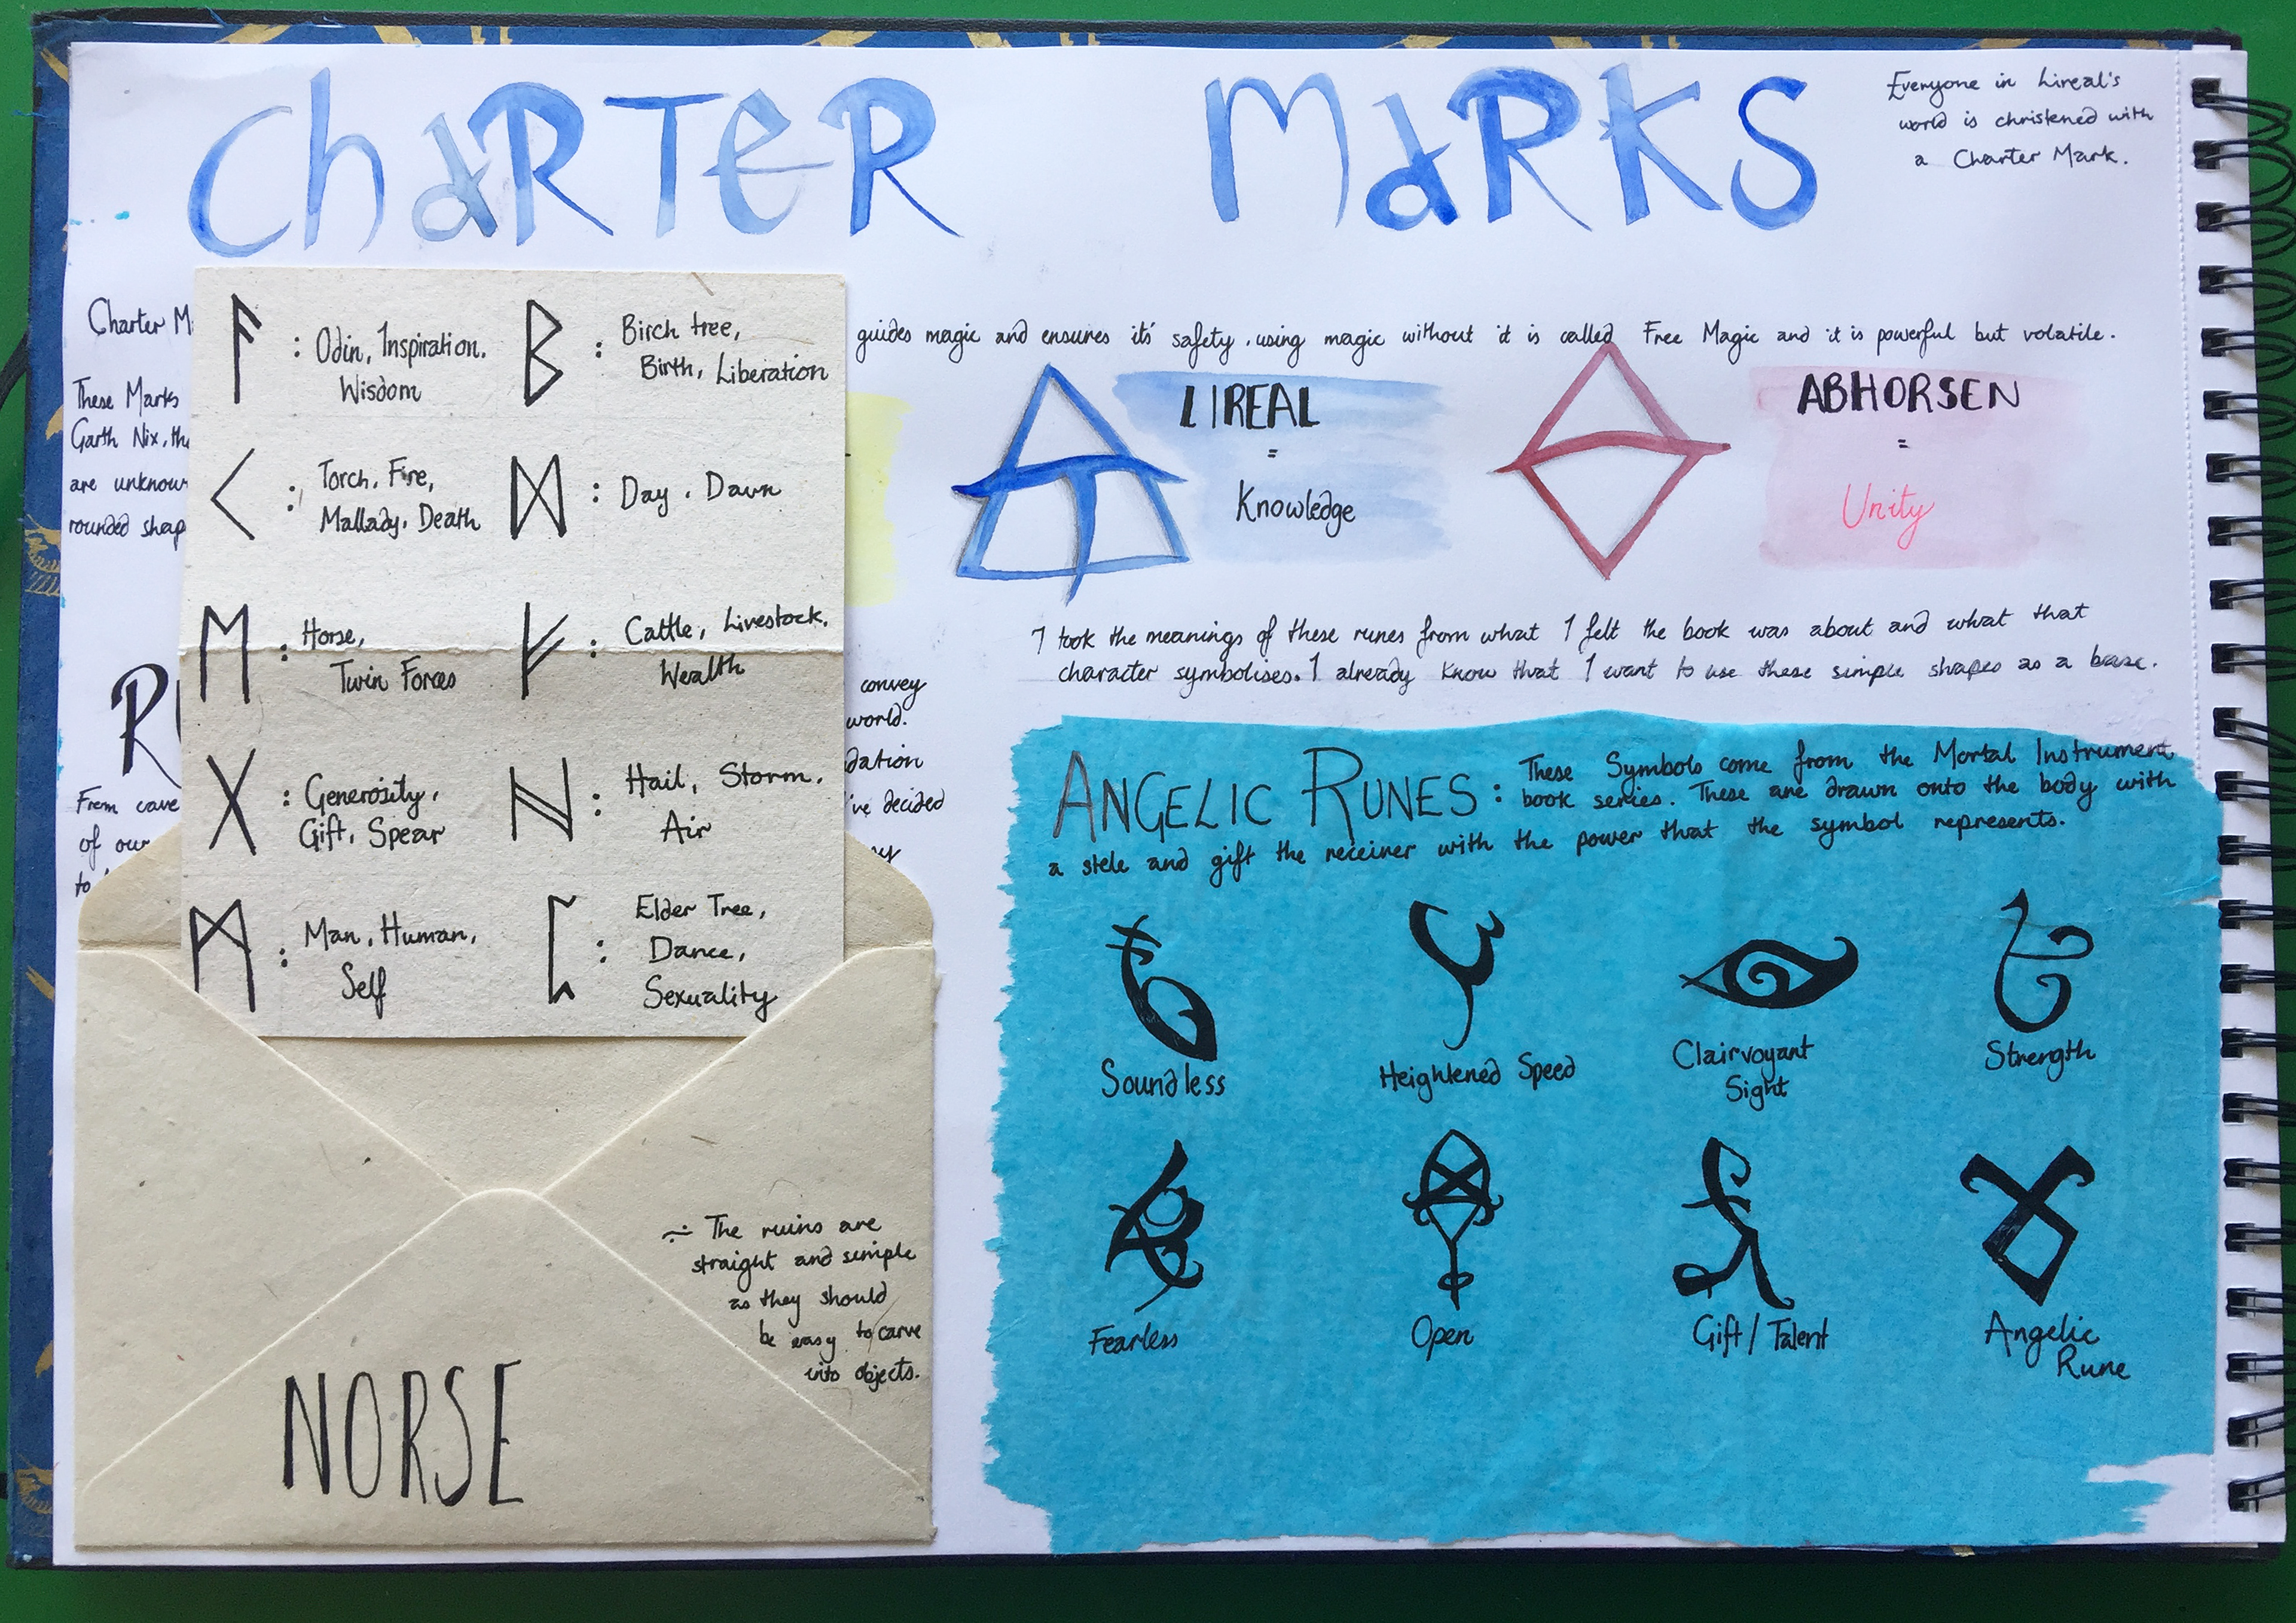 ChaRTeR MaRKS
Everyone in Lireal's
world is christened with
a Charter Mark.
Charter M
guides magic and ensures its' safety, using magic without it is called Free Magic and it is powerful but volatile.
These Marks
Garth Nix, the
are unknow
rounded shap
ᚨ : Odin, Inspiration,
Wisdom
ᛒ : Birch tree,
Birth, Liberation
ᚲ : Torch, Fire,
Mallady, Death
ᛞ : Day, Dawn
ᛖ : Horse,
Twin Forces
ᚠ : Cattle, Livestock,
Wealth
ᚷ : Generosity,
Gift, Spear
ᚺ : Hail, Storm,
Air
ᛗ : Man, Human,
Self
ᛈ : Elder Tree,
Dance,
Sexuality
LIREAL
=
Knowledge
ABHORSEN
=
Unity
I took the meanings of these runes from what I felt the book was about and what that
character symbolises. I already know that I want to use these simple shapes as a base.
RU
convey
world.
dation
From cave
've decided
of our
to
The ruins are
straight and simple
as they should
be easy to carve
into objects.
NORSE
ANGELIC RUNES : These Symbols come from the Mortal Instrument
book series. These are drawn onto the body with
a stele and gift the receiner with the power that the symbol represents.
Soundless
Heightened Speed
Clairvoyant
Sight
Strength
Fearless
Open
Gift / Talent
Angelic
Rune